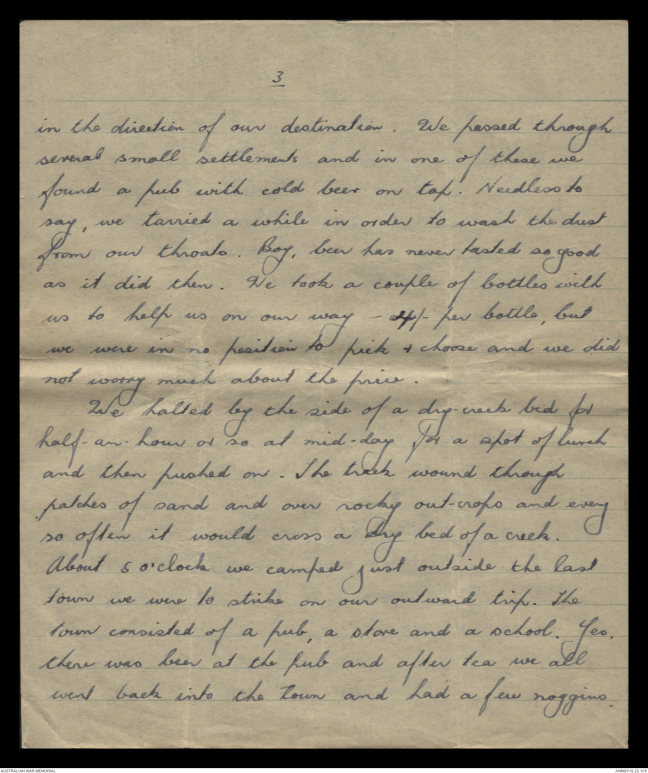 3
in the direction of our destination. We passed through
several small settlements and in one of these we
found a pub with cold beer on tap. Needless to
say, we tarried a while in order to wash the dust
from our throats. Boy, beer has never tasted so good
as it did then. We took a couple of bottles with
us to help us on our way - 4/- per bottle, but
we were in no position to pick & choose and we did
not worry much about the price.
We halted by the side of a dry-creek bed for
half-an-hour or so at mid-day for a spot of lunch
and then pushed on. The treck wound through
patches of sand and over rocky out-crops and every
so often it would cross a dry bed of a creek.
About 5 o'clock we camped just outside the last
town we were to strike on our outward trip. The
town consisted of a pub, a store and a school. Yes,
there was beer at the pub and after tea we all
went back into the town and had a few noggins.
AUSTRALIAN WAR MEMORIAL